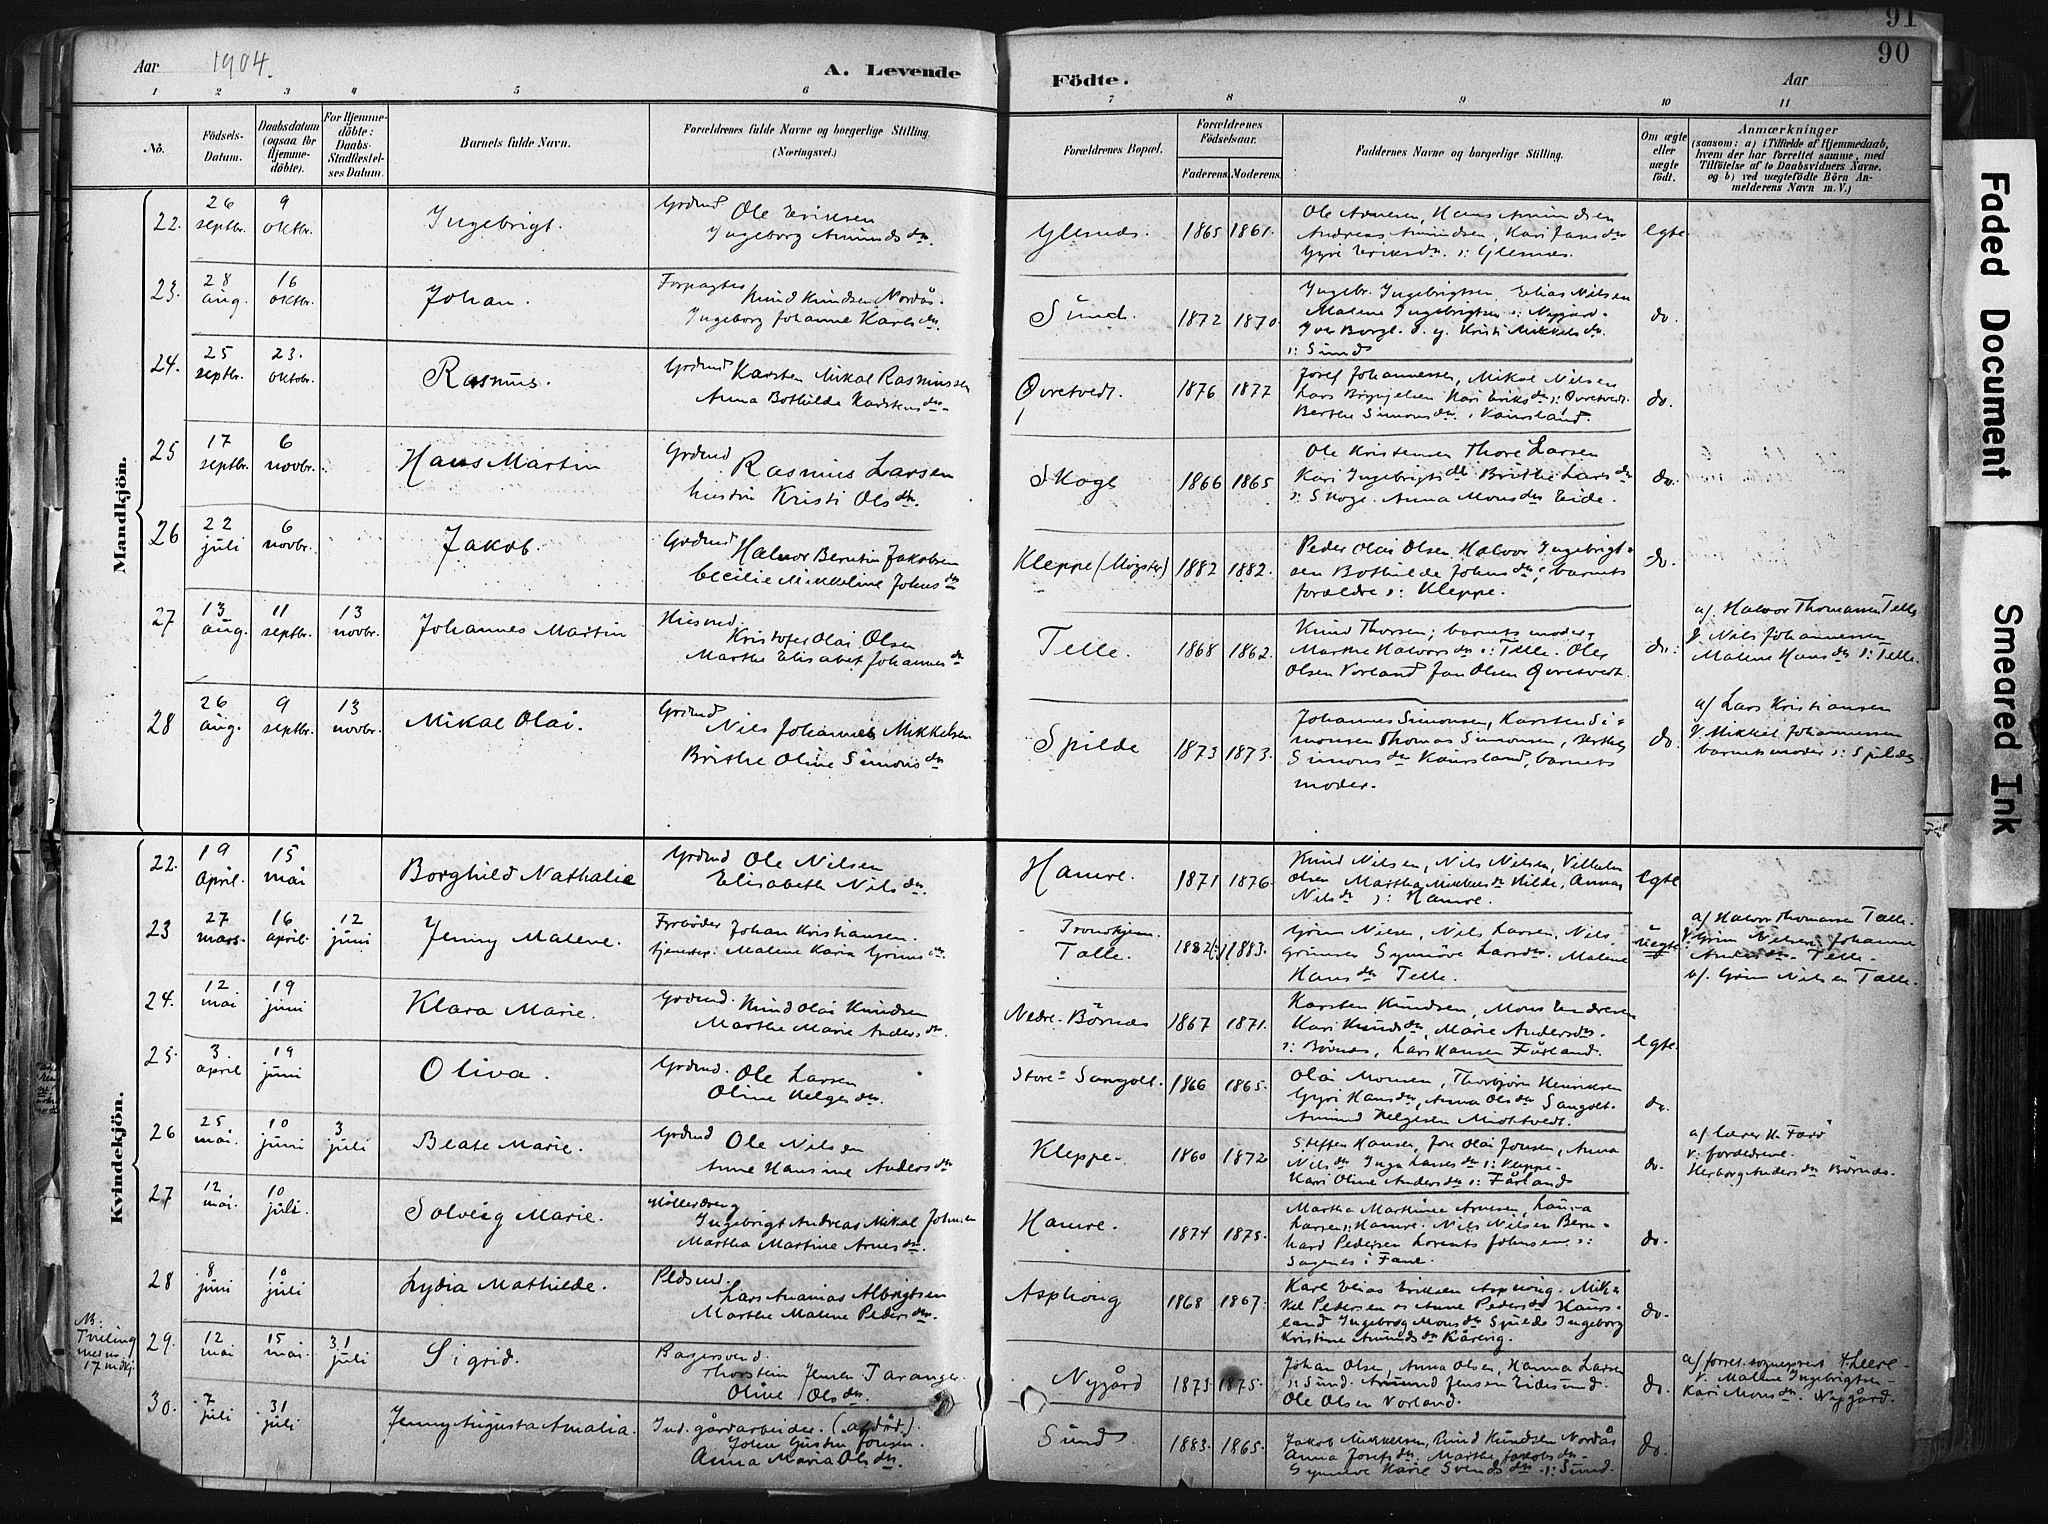 91
90
Aar 1904.
A. Levende
Födte.
Aar
1 2 3 4 5 6 7 8 9 10 11
No.
Födsels-Datum.
Daabsdatum (ogsaa for Hjemmedöbte).
For Hjemmedöbte: Daabs-Stadfæstelses Datum.
Barnets fulde Navn.
Forældrenes fulde Navne og borgerlige Stilling.
(Næringsvei.)
Forældrenes Bopæl.
Forældrenes Födselsaar.
Faderens. Moderens.
Faddernes Navne og borgerlige Stilling.
Om ægte eller uægte födt.
Anmærkninger
(saasom: a) i Tilfælde af Hjemmedaab, hvem der har forrettet samme, med Tilföielse af to Daabsvidners Navne, og b) ved uægtefödte Börn Anmelderens Navn m. V.)
Mandkjön.
22. 26 septbr. 9 oktbr. Ingebrigt. Grdmd Ole Eriksen
Ingeborg Amundsdtr.
Glesnæs. 1865 1861. Ole Arnesen, Hans Amundsen
Andreas Amundsen, Kari Jansdtr
Gyri Eriksdtr s: Glesnæs.
egte
23. 28 aug. 16 oktbr. Johan. Forpagter Knud Knudsen Nordås.
Ingeborg Johanne Karlsdtr.
Sund. 1872 1870. Ingebr. Ingebrigtsen, Elias Nilsen
Malene Ingebrigtsen s: Nygård.
Iver Borgt. d. y. Kristi Mikkelsdtr.
s: Sund
do.
24. 25 septbr. 23. oktobr. Rasmus. Grdmd Karsten Mikal Rasmussen
Anna Bothilde Karstensdtr.
Övretvedt. 1876 1877 Josef Johannessen, Mikal Nilsen
Lars Kari Eriksdtr s: Övretvedt.
Berthe Simonsdtr, Kausland.
do.
25 17 septbr. 6 novbr. Hans Martin Grdmd Rasmus Larsen
hustru Kristi Olsdtr.
Skoge 1866 1865 Ole Kristensen Thore Larsen
Kari Ingebrigtsdtr Brithe Larsdtr
s: Skoge. Anna Monsdtr Eide.
do.
26 22 juli 6 novbr. Jakob. Grdmd Halvor Berntin Jakobsen
Cecilie Mikkeline Johnsdtr
Kleppe (Mögster) 1882 1882. Peder Olai Olsen Halvor Ingebrigtsen
Bothilde Johnsdtr; barnets
forældre s: Kleppe.
do.
27 13 aug. 11 septbr. 13 novbr. Johannes Martin Husmd. Kristofer Olai Olsen
Marthe Elisabet Johannesdtr
Telle. 1868 1862. Knud Thorsen; barnets moder,
Marthe Halvorsdtr s: Telle. Ole
Olsen Vorland Jan Olsen Övretvedt.
do:
a/ Halvor Thomassen Telle
V. Nils Johannessen
Malene Hansdtr s: Telle.
28 26 aug. 9 septbr. 13 novbr. Mikal Olai. Grdmd Nils Johannes Mikkelsen
Brithe Oline Simonsdtr
Spilde 1873 1873. Johannes Simonsen, Karsten Simonsen
Thomas Simonsen, Berthe
Simonsdtr Kausland, barnets
moder.
do.
a/ Lars Kristiansen
V. Mikkel Johannessen
barnets moder s: Spilde
Kvindekjön.
22. 19 april. 15 mai Borghild Nathalie Grdmd Ole Nilsen
Elisabeth Nilsdtr.
Hamre. 1871 1876. Knud Nilsen, Nils Nilsen, Vilhelm
Olsen Martha Mikkelsdtr Hilde, Anna
Nilsdtr s: Hamre.
egte
23 27 mars. 16 april. 12 juni Jenny Malene. Fyrböder Johan Kristiansen.
tjenestep. Malene Karia Grimsdtr.
Tronshjem.
Tælle. 1882 1883. Grim Nilsen, Nils Larsen, Nils
Grimsen Synnöve Larsdtr. Malene
Hansdtr Telle.
uegte
a/ Halvor Thomassen Tælle.
V: Grim Nilsen, Johanne
Andersdtr. Telle.
b/. Grim Nilsen Tælle.
24. 12 mai 19 juni Klara Marie. Grdmd. Knud Olai Knudsen
Marthe Marie Andersdtr
Nedre-Börnæs 1867 1871. Karsten Knudsen, Mons Endresen
Kari Knudsdtr, Marie Andersdtr.
s: Börnæs, Lars Hansen Fårland.
egte.
25. 3. april 19 juni Oliva. Grdmd. Ole Larsen
Oline Helgesdtr.
Store-Sangolt. 1866 1865. Olai Monsen, Thorbjörn Henriksen
Gyri Hansdtr, Anna Olsdtr Sangolt.
Amund Helgesen Midttvedt.
do.
26 25 mai. 10 juni 3 juli Beate Marie. Grdmd Ole Nilsen
Anne Hansine Andersdtr
Kleppe. 1860 1872 Steffen Hansen, Jore Olai Jonsen, Anna
Nilsdtr Inga Larsdtr s: Kleppe.
Kari Oline Andersdtr s: Fårland
do.
a/ lærer H. Farö
V: forældrene.
Herborg Andersdtr Börnæs.
27 12 mai. 10 juli. Solveig Marie. Möllersvend Ingebrigt Andreas Mikal Johnsen
Martha Martine Arnesdtr.
Hamre. 1874 1875. Martha Martinie Arnesen, Laura
Larsen s: Hamre. Nils Nilsen Bernhard
Pedersen Lorents Johnsen s:
Sagenes i Fane.
do.
28 8 juni 10 juli Lydia Mathilde. Pldsmd. Lars Ananias Albrigtsen
Marthe Malene Pedersdtr.
Asphoug 1868 1867. Karl Elias Eriksen Asphoug. Mikkel
Pedersen og Anne Pedersdtr Hausland
Ingeborg Monsdtr Spilde Ingeborg
Kristine Amundsdtr Kårevig.
do.
N.
Tvilling
med no
17 mdkj.
29. 12 mai 15 mai. 31 juli Sigrid. Bagersvend. Thorstein Jensen Taranger.
Oline Olsdtr.
Nygård 1873 1875. Johan Olsen, Anna Olsen, Hanna Larsen
s: Sund. Amund Jensen Eidesund.
Ole Olsen Vorland.
do.
a/ forret. sogneprest
V. Malene Ingebrigtsen
Kari Monsdtr. Nygård.
30. 7 juli 31 juli Jenny Augusta Amalia. Ind. gårdarbeider. (afdöd).
John Gustav Jonsen.
Anna Maria Olsdtr.
Sund 1883. 1865. Jakob Mikkelsen, Knud Knudsen Nordås
Anna Josefsdtr. Marthe Jakobsdtr.
Synneve Karie Svendsdtr s: Sund.
do.
Faded Document
Smeared Ink